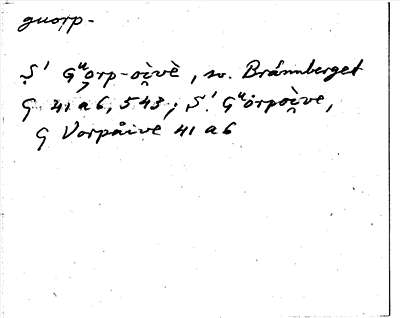 guorp-
S' Gᵘo̧rp-oi̯vè, sv. Brännberget
G 41 a 6, 543; S' Gᵘȯrpoi̯ve,
G Vorpåive 41 a 6